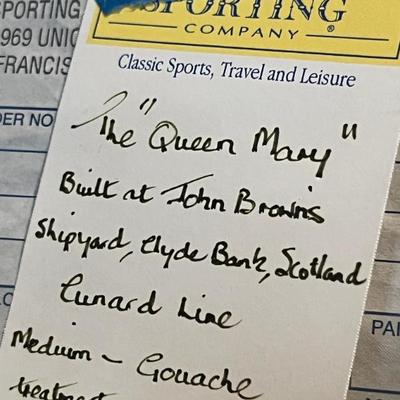 PORTING
969 UNIO
FRANCIS
SPORTING
COMPANY ®
Classic Sports, Travel and Leisure
DER NO
The "Queen Mary"
Built at John Brown's
Shipyard, Clyde Bank, Scotland
Cunard Line
PAI
Medium ~ Gouache
treatment